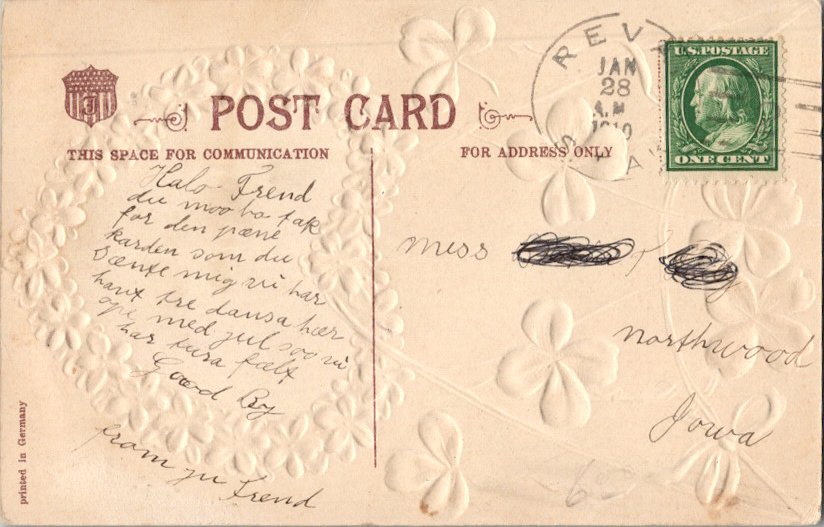 REV
JAN
28
A.M.
1910
U.S. POSTAGE
ONE CENT
POST CARD
THIS SPACE FOR COMMUNICATION
FOR ADDRESS ONLY
Halo Frend
du moo ha tak
for den pæne
karden som du
Sænte mig vi har
havt tre dansa hær
ope med jul soo vi
har tura fælt
Good By
from yu Frend
Miss
Northwood
Iowa
printed in Germany